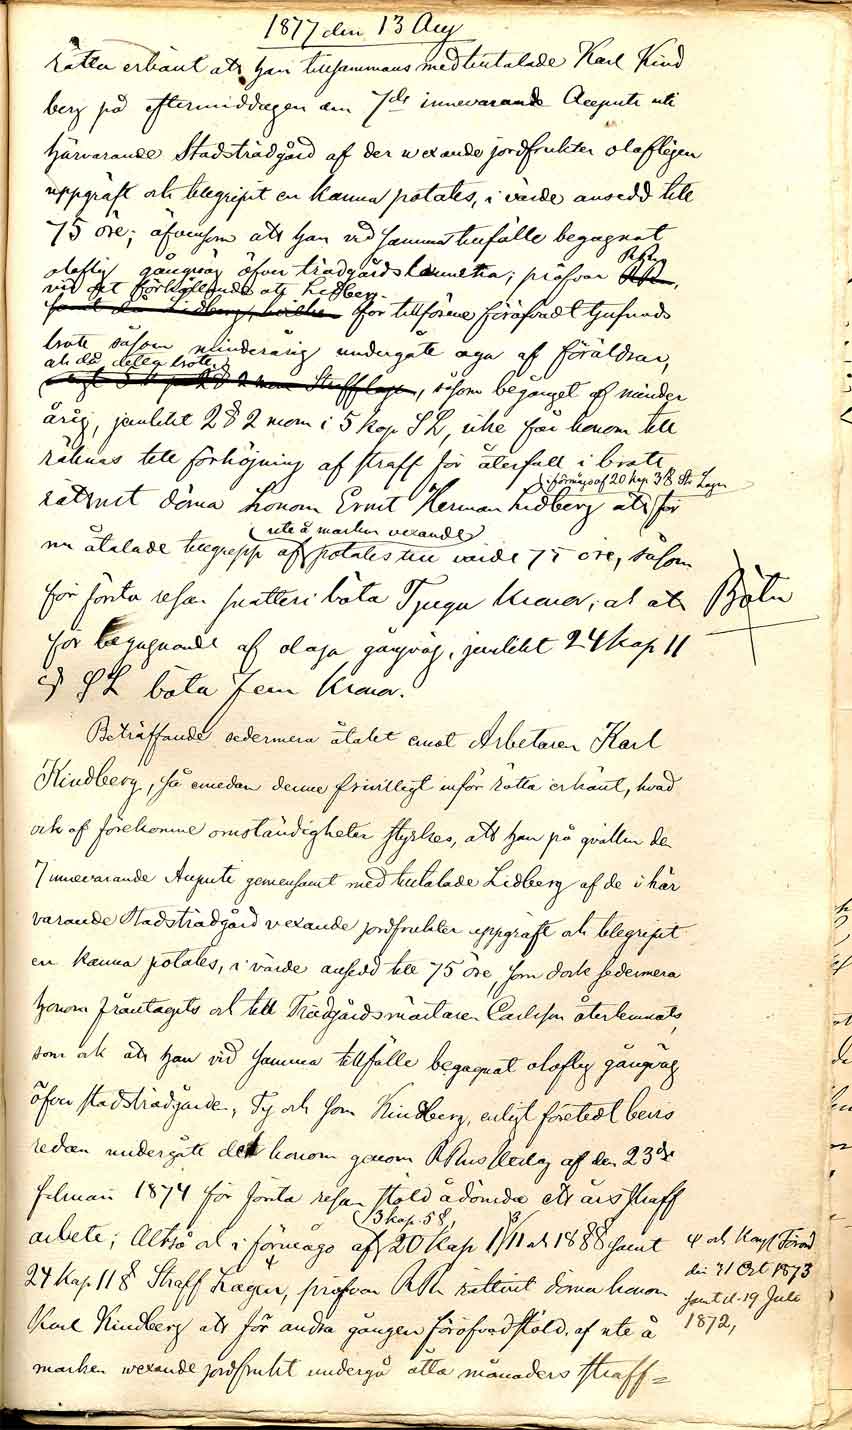 1877 den 13 Aug
rätta erkänt att han tillsammans med tilltalade Karl Kind
berg på eftermiddagen den 7de innevarande Augusti uti
härvarande Stadsträdgård af der wexande jordfrukter olofligen
uppgräft och tillgripit en kanna potates, i värde ansedd till
75 öre; äfvensom att han vid samma tillfälle begagnat
oloflig gångväg öfver trädgårds; pröfvar RRn
vid det förhållande att Lidberg
för tillförene föröfvadt tjufnads
brott såsom minderårig undergått aga af föräldrar,
och då detta brott
, såsom begånget af minder
årig, jemlikt 2 § 2 mom i 5 kap SL, icke får honom till
räknas till förhöjning af straff för återfall i brott
i förmågo af 20 kap 3 § Str Lagen
rättvist döma honom Ernst Herman Lidberg att för
ute å marken vexande
nu åtalade tillgrepp af potates till värde 75 öre, såsom
för första resan snatteri böta Tjugu kronor; och att
Böter
för begagnande af olaga gångväg, jemlikt 24 kap 11
§ SL böta Fem Kronor.
Beträffande sedermera åtalet emot Arbetaren Karl
Kindberg, så emedan denne frivilligt inför rätta erkänt, hvad
ock af förekomne omständigheter styrkes, att han på qvällen den
7 innevarande Augusti gemensamt med tilltalade Lidberg af de i här
varande Stadsträdgård vexande jordfrukter uppgräft och tillgripit
en kanna potates, i värde ansedd till 75 öre, som dock sedermera
honom fråntagits och till Trädgårdsmästaren Carlson återlemnats,
som ock att han vid samma tillfälle begagnat oloflig gångväg
öfver stadsträdgården, Ty och som Kindberg, enligt företedt bevis
redan undergått det honom genom RRns Utslag af den 23de
februari 1874 för första resan stöld ådömda ett års straff
3 kap. 5 §,
arbete; Altså och i förmågo af 20 Kap 1, 11 och 18 §§ samt
4 och Kongl Förord
den 31 Oct 1873
samt d. 19 Juli
1872,
24 Kap 11 § Straff Lagen, pröfvar RRn rättvist döma honom
Karl Kindberg att för andra gången föröfvad stöld af ute å
marken wexande jordfrukt undergå åtta månaders straff=